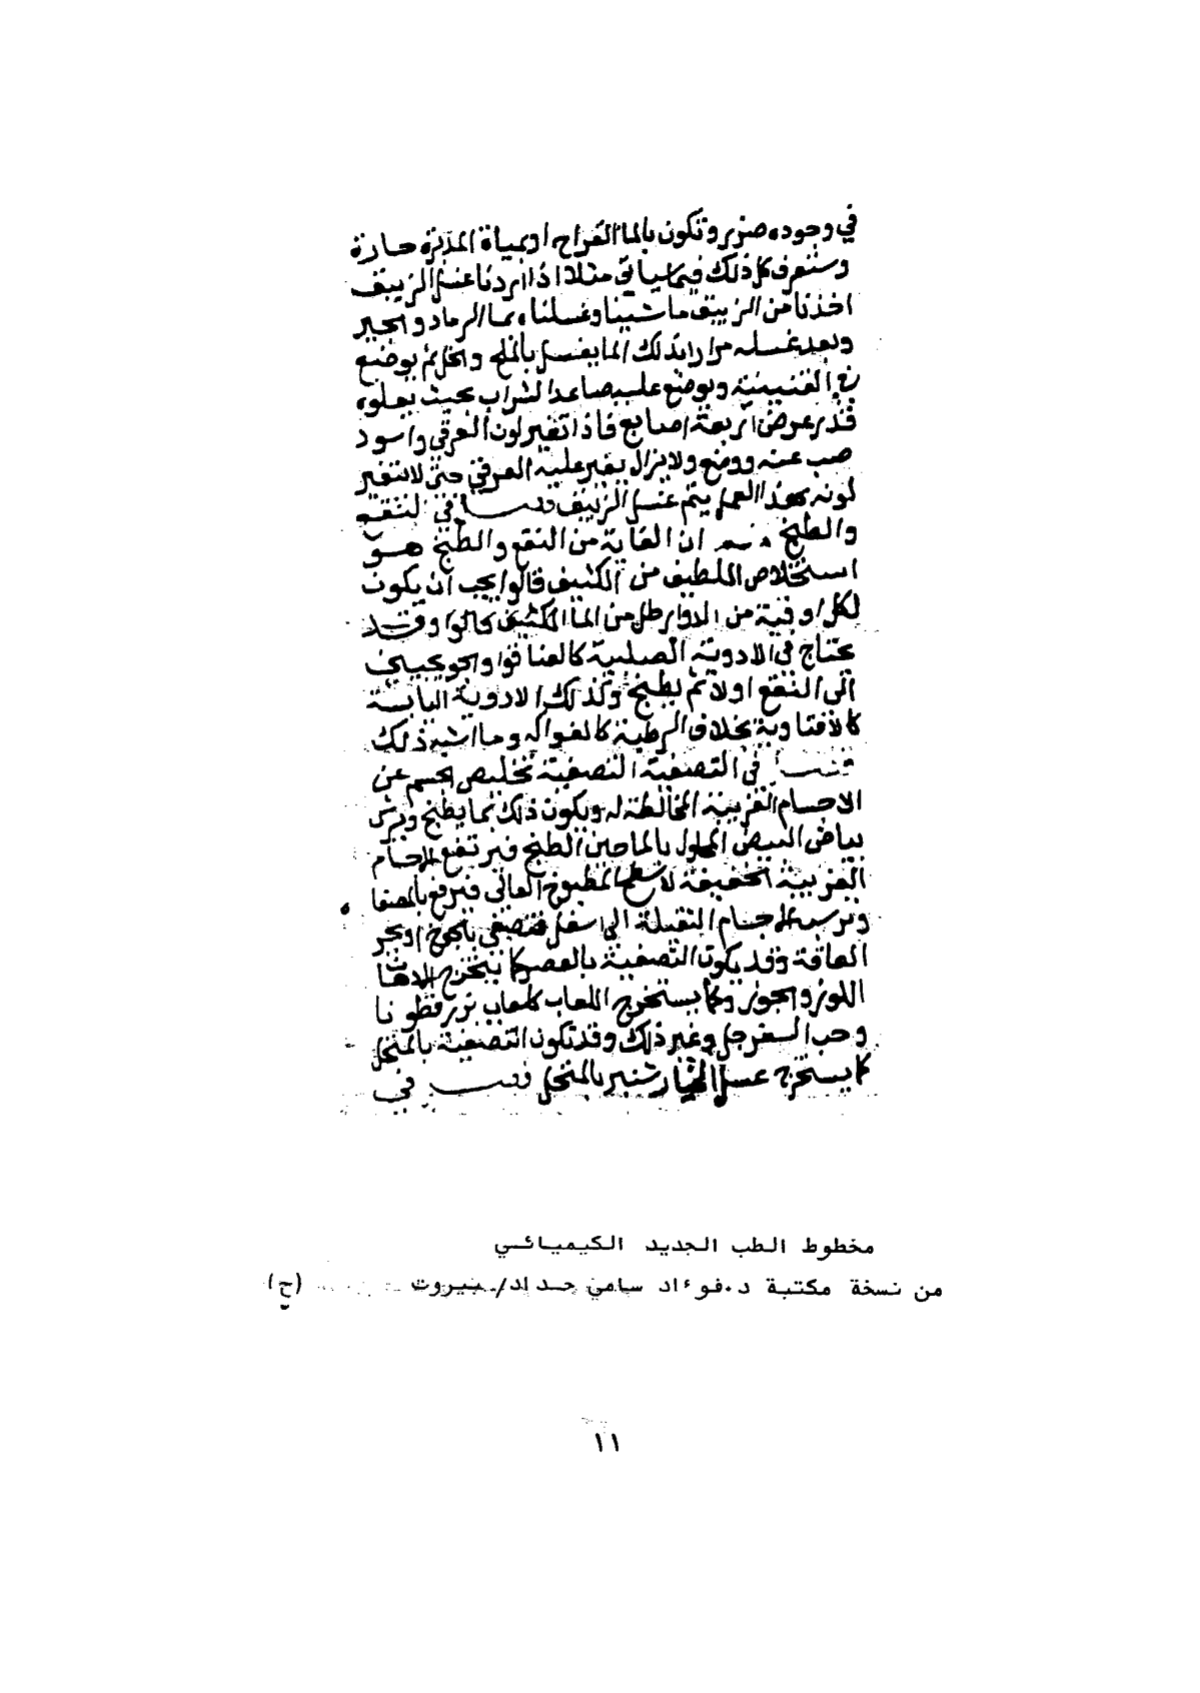 في وجوده ضرر وتكون بالما القراح او بمياة المدبرة حارة
وستعرف كل ذلك فيما ياتي مثلا اذا اردنا غسل الزيبق
اخذنا من الزيبق ما شينا وغسلناه بما الرماد والجير
وبعد غسله مرارا بذلك الما يغسل بالملح والخل ثم يوضع
في القنينية ويوضع عليه صاعد الشراب بحيث يعلوه
قدر عرض اربعة اصابع فاذا تغير لون العرقي واسود
صب عنه ووضع ولا يزال يغير عليه العرقي حتى لا يتغير
لونه بهذا العمل يتم غسل الزيبق فصل في النقع
والطبخ ان الغاية من النقع والطبخ هو
استخلاص اللطيف من الكثيف قالوا يجب ان يكون
لكل اوقية من الدوا رطل من الما الكثيف قالوا وقد
يحتاج في الادوية الصلبية
الى النقع اولا ثم يطبخ وكذلك الادوية اليابسة
كالافتاوية بخلاف الرطبة كالفواكه وما اشبه ذلك
فصل في التصفية التصفية تخليص الجسم عن
الاجسام الغريبة المخالطة له ويكون ذلك بما يطبخ ويرش
بياض البيض المحلول بالما حين الطبخ فترتفع الاجسام
الغريبة الخفيفة لا سطحا لمطبوخ العالي فترفع بالمصفا
وترسب الاجسام الثقيلة الى اسفل فتصفى بالجوخ او بجر
العاقة وقد يكون التصفية بالعصر كما يتخرج الادهان
اللوز والجوز وكما يستخرج اللعاب كلعاب بزر قطونا
وحب السفرجل وغير ذلك وقد تكون التصفية بالمنخل
كما يستخرج عسل الخيار شنبر بالمنخل فصل في
مخطوط الطب الجديد الكيميائي
من نسخة مكتبة د.فوءاد سامي حداد/بيروت (ح)
١١